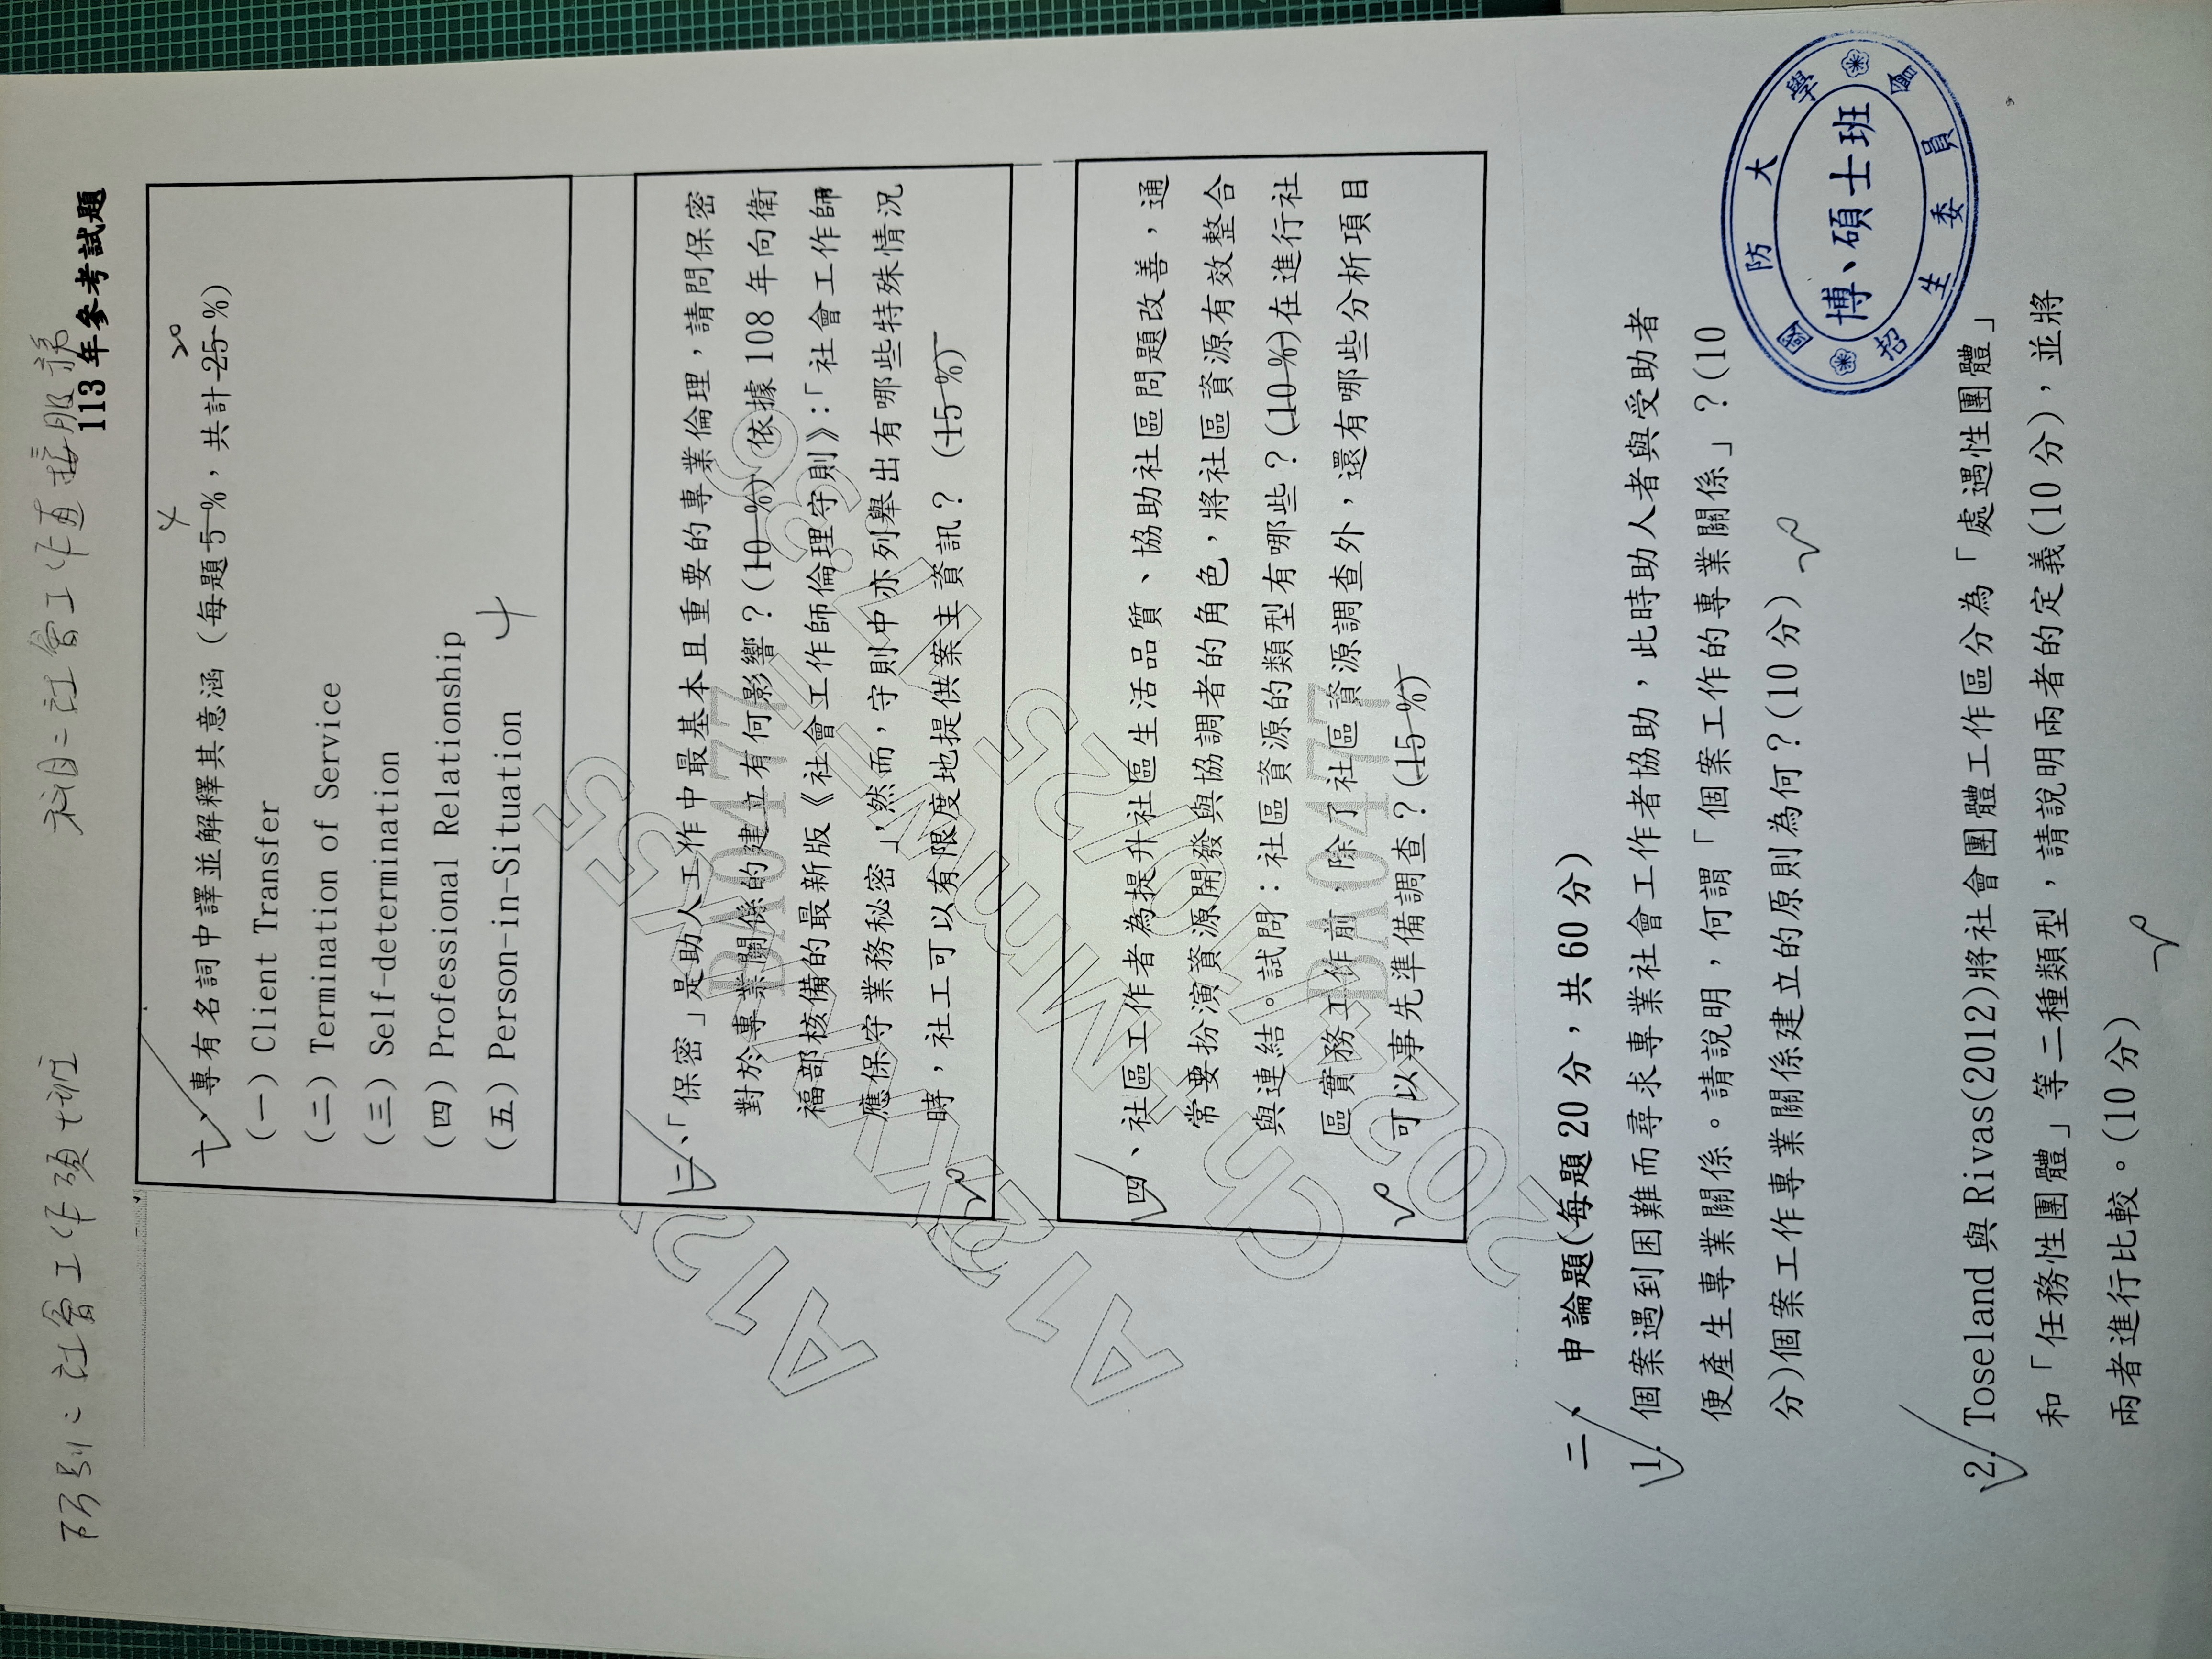 班別：社會工作碩士班
科目：社會工作直接服務
113年參考試題
一、專有名詞中譯並解釋其意涵（每題5%，共計25%）
4
20
(一) Client Transfer
(二) Termination of Service
(三) Self-determination
(四) Professional Relationship
(五) Person-in-Situation
4
二、「保密」是助人工作中最基本且重要的專業倫理，請問保密
對於專業關係的建立有何影響？(10%)依據108年向衛
福部核備的最新版《社會工作師倫理守則》：「社會工作師
應保守業務秘密」，然而，守則中亦列舉出有哪些特殊情況
時，社工可以有限度地提供案主資訊？ (15%)
20
四、社區工作者為提升社區生活品質、協助社區問題改善，通
常要扮演資源開發與協調者的角色，將社區資源有效整合
與連結。試問：社區資源的類型有哪些？(10%)在進行社
區實務工作前，除了社區資源調查外，還有哪些分析項目
可以事先準備調查？(15%)
20
BA0477
BA0477
二、申論題(每題20分，共60分)
1.個案遇到困難而尋求專業社會工作者協助，此時助人者與受助者
便產生專業關係。請說明，何謂「個案工作的專業關係」？(10
分)個案工作專業關係建立的原則為何？(10分)
20
2.Toseland與Rivas(2012)將社會團體工作區分為「處遇性團體」
和「任務性團體」等二種類型，請說明兩者的定義(10分)，並將
兩者進行比較。(10分)
20
國防大學
博、碩士班
招生委員會